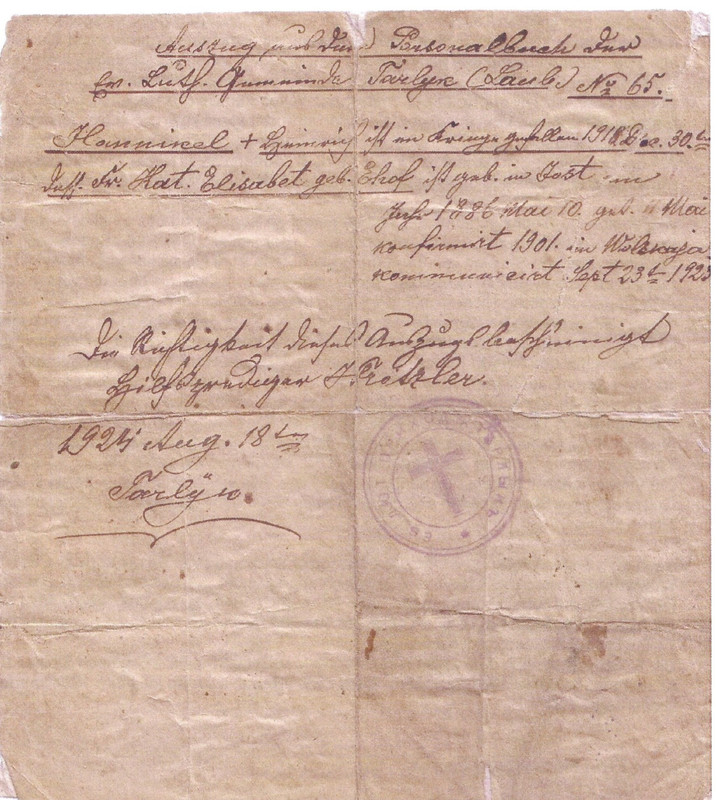 Auszug aus dem Personalbuch der
Ev. Luth. Gemeinde Tarlyk (Laub) № 65.
Hannikel + Heinrich ist im Kriege gefallen 1918. Dec. 30.
Dess. Fr. Kat. Elisabet geb. Ehof ist geb. in Jost im
Jahr 1886 Mai 10. get. 11 Mai
konfirmirt 1901. in Wolskaja
kommunicirt Sept 23 t
Die Richtigkeit dieses Auszugs bescheinigt
Hilfsprediger J. Tretzler.
Aug. 18 ten
Tarlyk.